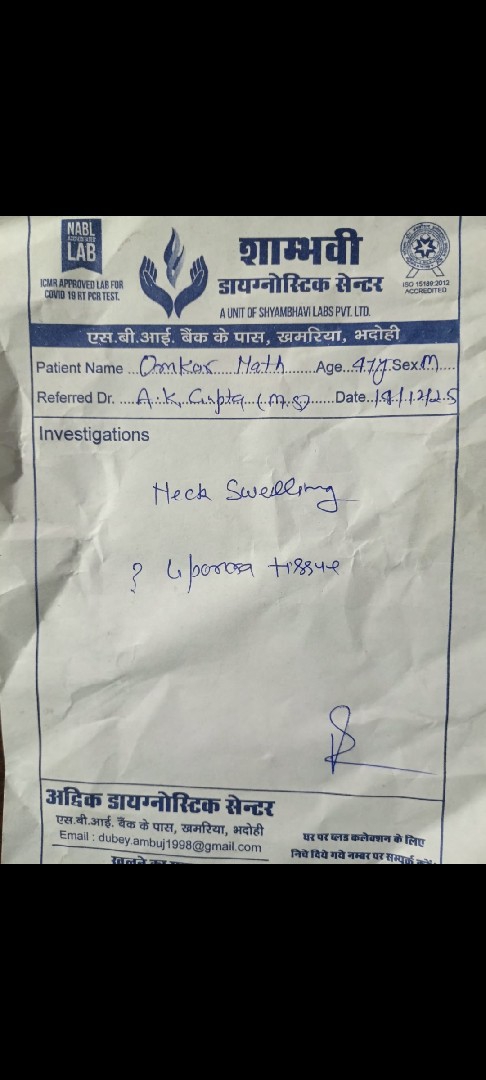 NABL
ACCREDITED
LAB
ICMR APPROVED LAB FOR
COVID 19 RT PCR TEST.
शाम्भवी
डायग्नोस्टिक सेन्टर
A UNIT OF SHYAMBHAVI LABS PVT. LTD.
ISO 15189:2012
ACCREDITED
एस.बी.आई. बैंक के पास, खमरिया, भदोही
Patient Name ...Omkar Nath......Age..47y.Sex.M....
Referred Dr. ....A.K. Gupta (M.S)......Date..19/12/25
Investigations
Neck Swelling
? Lipoma tissue
अद्विक डायग्नोस्टिक सेन्टर
एस.बी.आई. बैंक के पास, खमरिया, भदोही
Email : dubey.ambuj1998@gmail.com
घर पर ब्लड कलेक्शन के लिए
निचे दिये गये नम्बर पर सम्पर्क करें
खुलने का